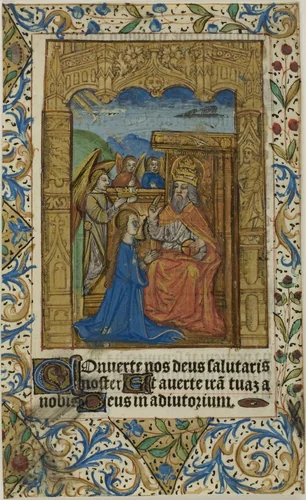 Converte nos deus salutaris
noster Et averte irā tuaz a
nobis Deus in adiutorium.